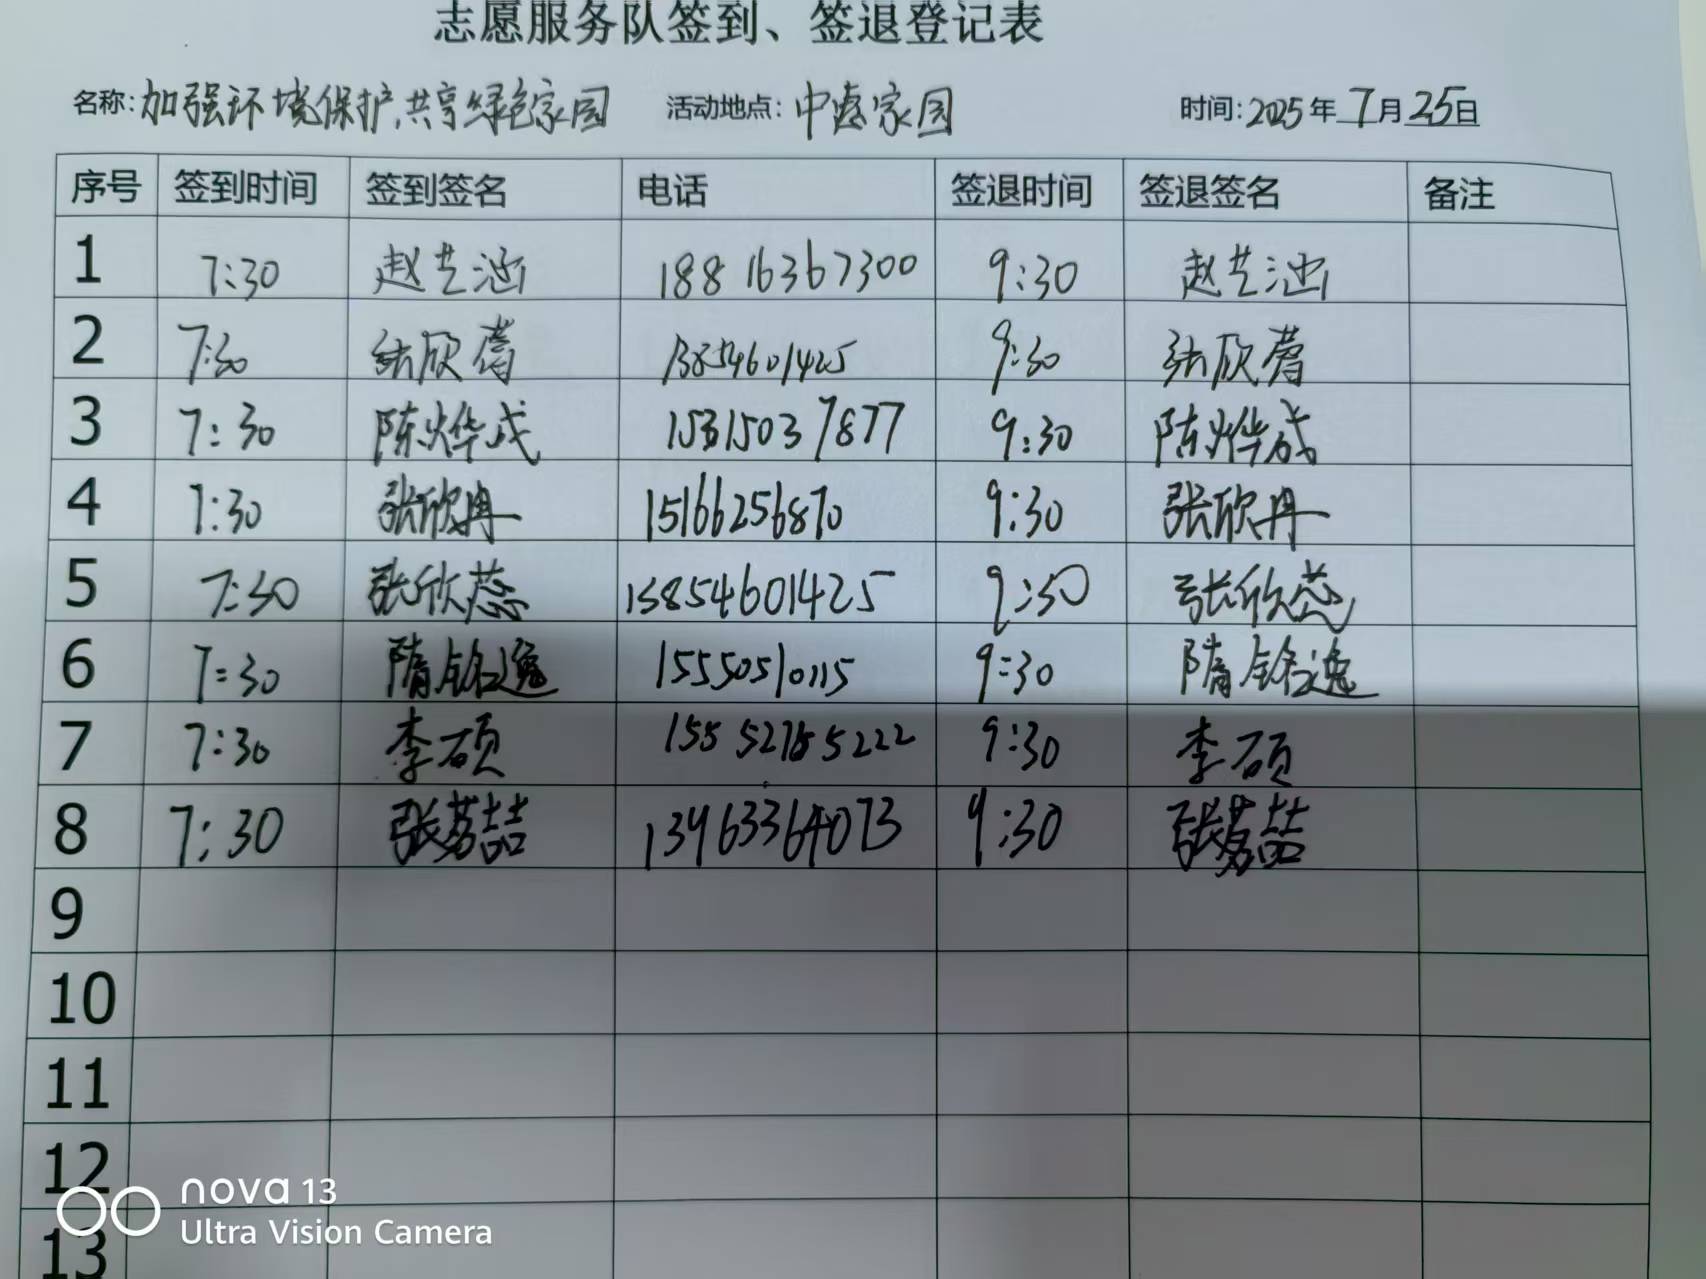 志愿服务队签到、签退登记表
名称:加强环境保护,共享绿色家园 活动地点:中 家园 时间:2025年7月25日
序号 签到时间 签到签名 电话 签退时间 签退签名 备注
1 7:30 赵艺涵 18816367300 9:30 赵艺涵
2 7:30 张欣 13854601425 9:30 张欣
3 7:30 陈烨成 15315037877 9:30 陈烨成
4 7:30 张欣冉 15166256870 9:30 张欣冉
5 7:30 张欣蕊 13854601425 9:30 张欣蕊
6 7:30 隋铭逸 15550510115 9:30 隋铭逸
7 7:30 李硕 9:30 李硕
8 7:30 张茗喆 13963364073 9:30 张茗喆
9
10
11
12
13
nova 13
Ultra Vision Camera